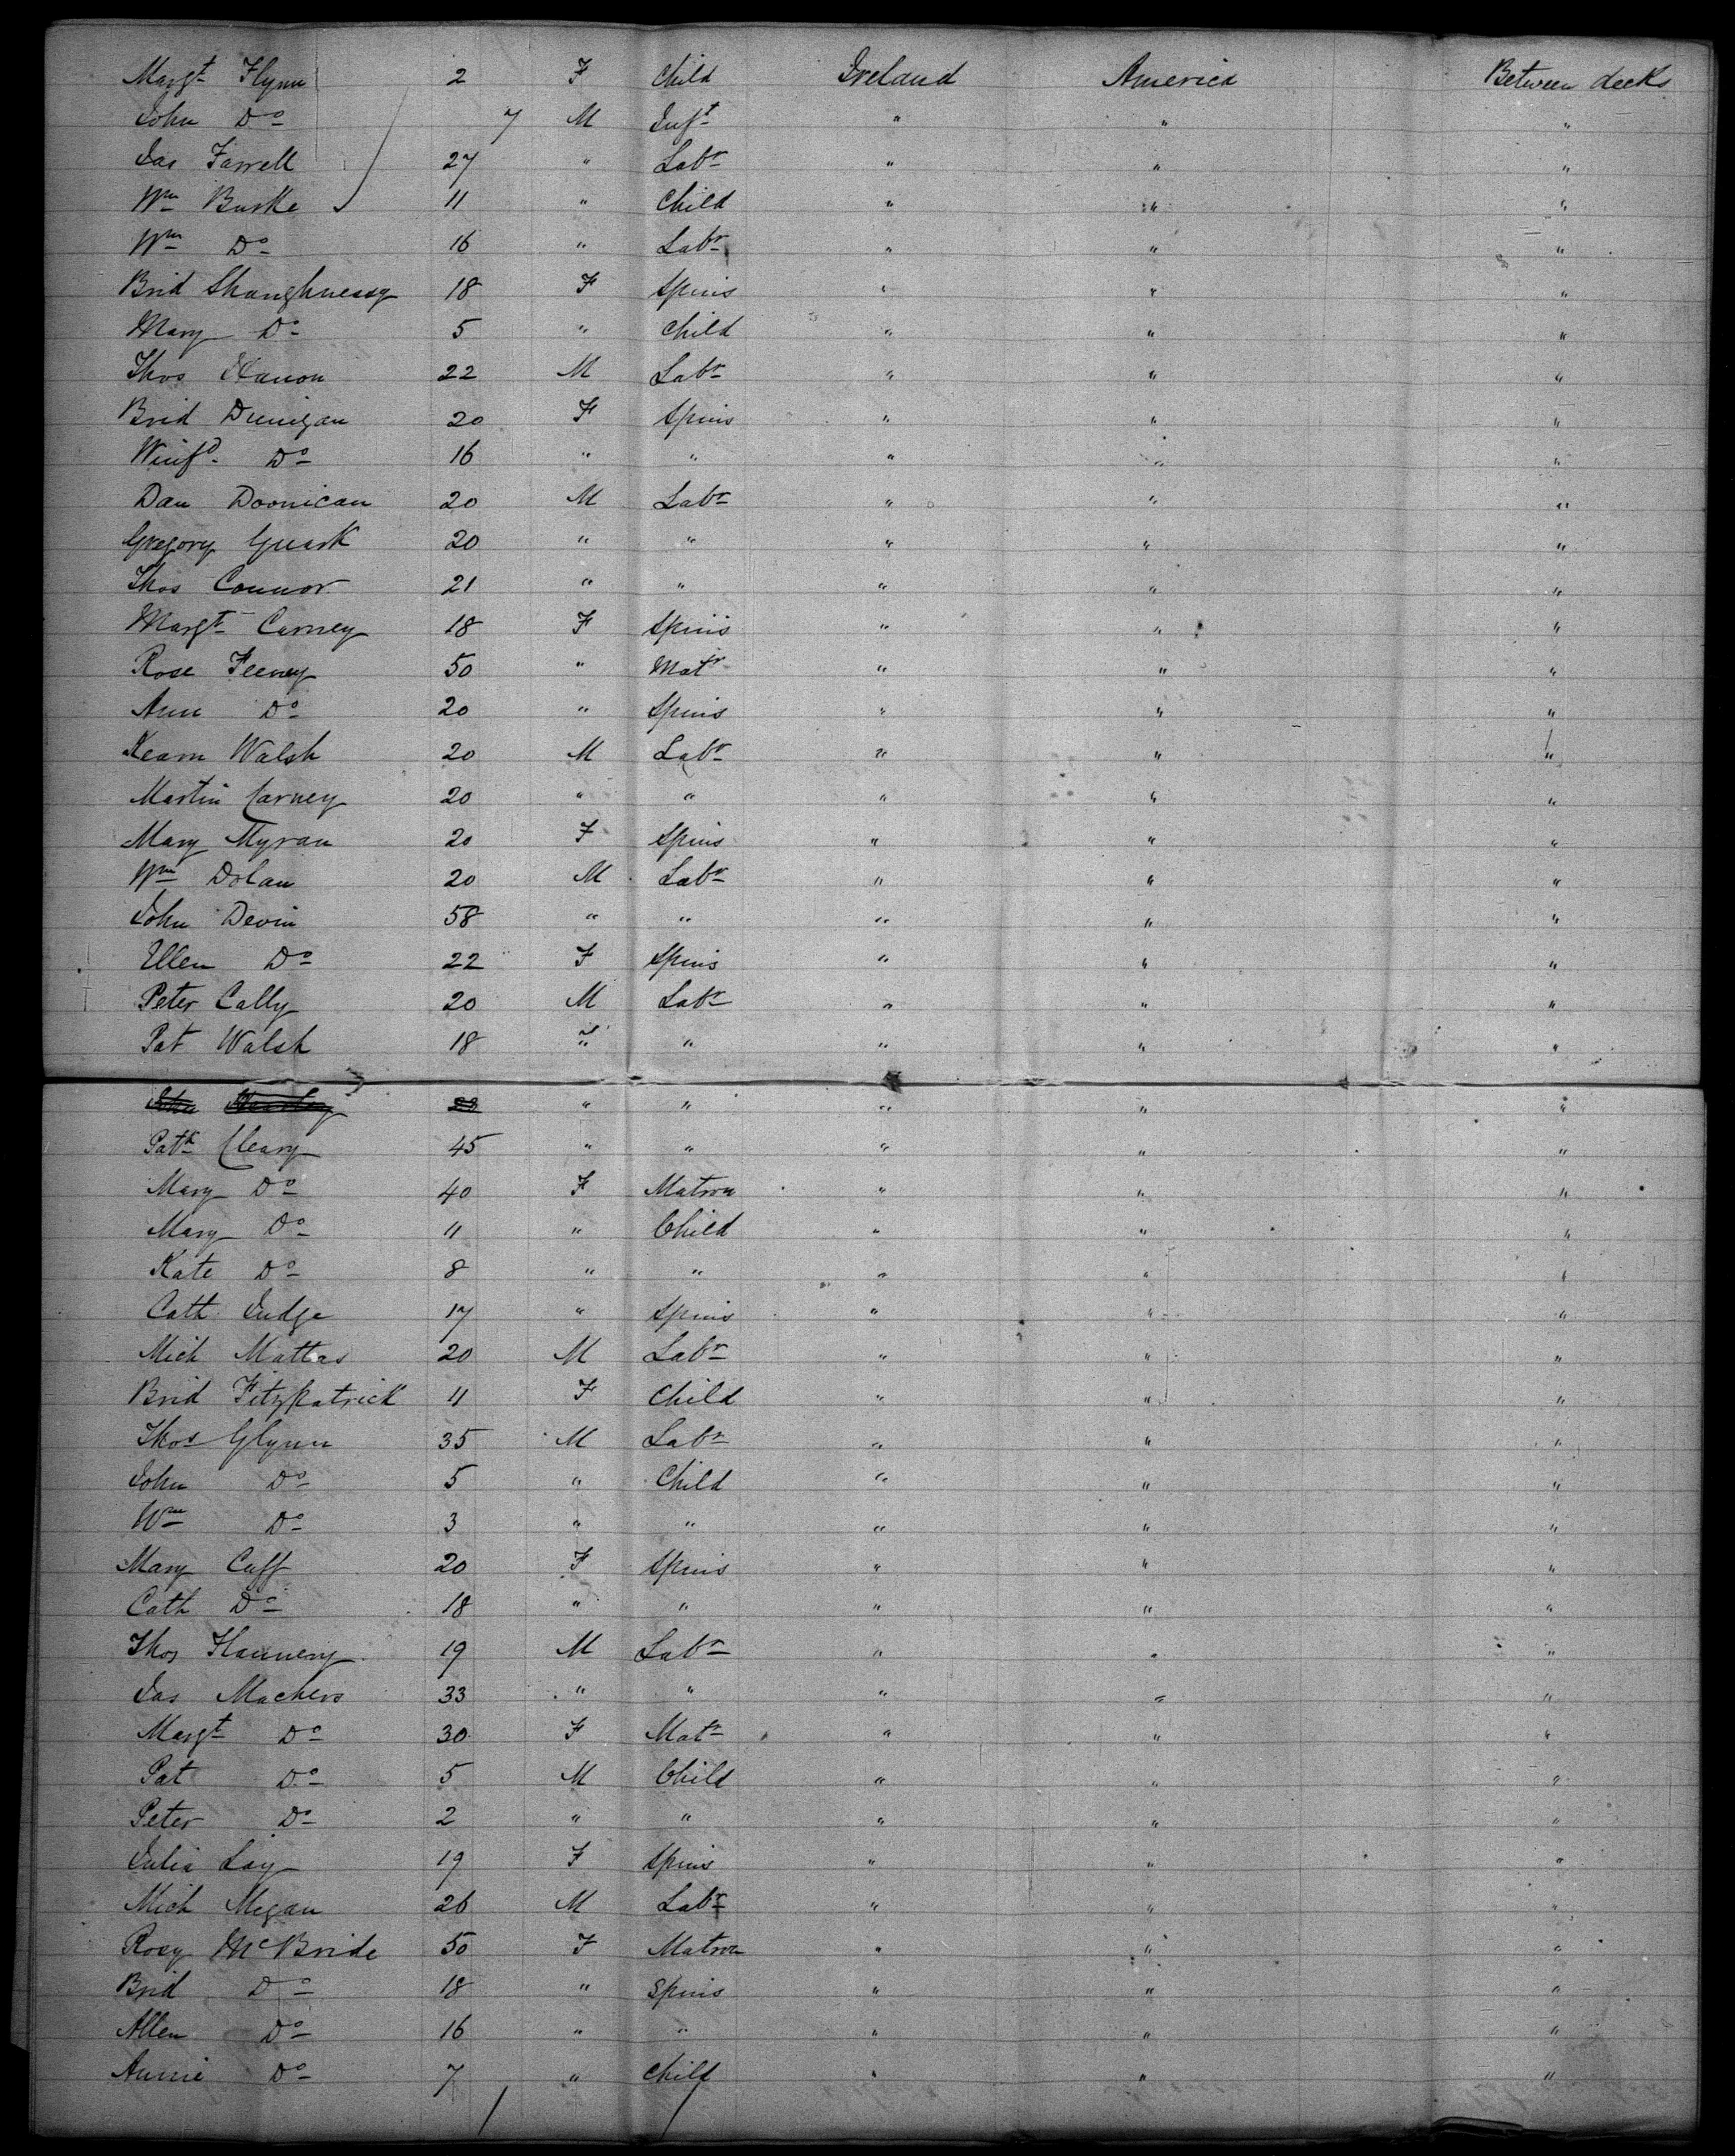 Margt Flynn 2 F Child Ireland America Between decks
John Do 7 M Inft " " "
Jas Farrell 27 " Labr " " "
Wm Burke 11 " Child " " "
Wm Do 16 " Labr " " "
Brid Shaughnessy 18 F Spins " " "
Mary Do 5 " Child " " "
Thos Hanon 22 M Labr " " "
Brid Dunigan 20 F Spins " " "
Winifd Do 16 " " " " "
Dan Doonican 20 M Labr " " "
Gregory Quark 20 " " " " "
Thos Connor 21 " " " " "
Margt Carney 18 F Spins " " "
Rose Feeney 50 " Matr " " "
Ann Do 20 " Spins " " "
Kearn Walsh 20 M Labr " " "
Martin Carney 20 " " " " "
Mary Myran 20 F Spins " " "
Wm Dolan 20 M Labr " " "
John Devin 58 " " " " "
Ellen Do 22 F Spins " " "
Peter Cally 20 M Labr " " "
Pat Walsh 18 " " " " "
John " " " " "
Patk Cleary 45 " " " " "
Mary Do 40 F Matron " " "
Mary Do 11 " Child " " "
Kate Do 8 " " " " "
Cath Judge 17 " Spins " " "
Mich Mattas 20 M Labr " " "
Brid Fitzpatrick 11 F Child " " "
Thos Glynn 35 M Labr " " "
John Do 5 " Child " " "
Wm Do 3 " " " " "
Mary Cuff 20 F Spins " " "
Cath Do 18 " " " " "
Thos Flannery 19 M Labr " " "
Jas Machers 33 " " " " "
Margt Do 30 F Matr " " "
Pat Do 5 M Child " " "
Peter Do 2 " " " " "
Julia Loy 19 F Spins " " "
Mich Megan 26 M Labr " " "
Rosy McBride 50 F Matron " " "
Brid Do 18 " Spins " " "
Allen Do 16 " " " " "
Annie Do 7 " Child " " "